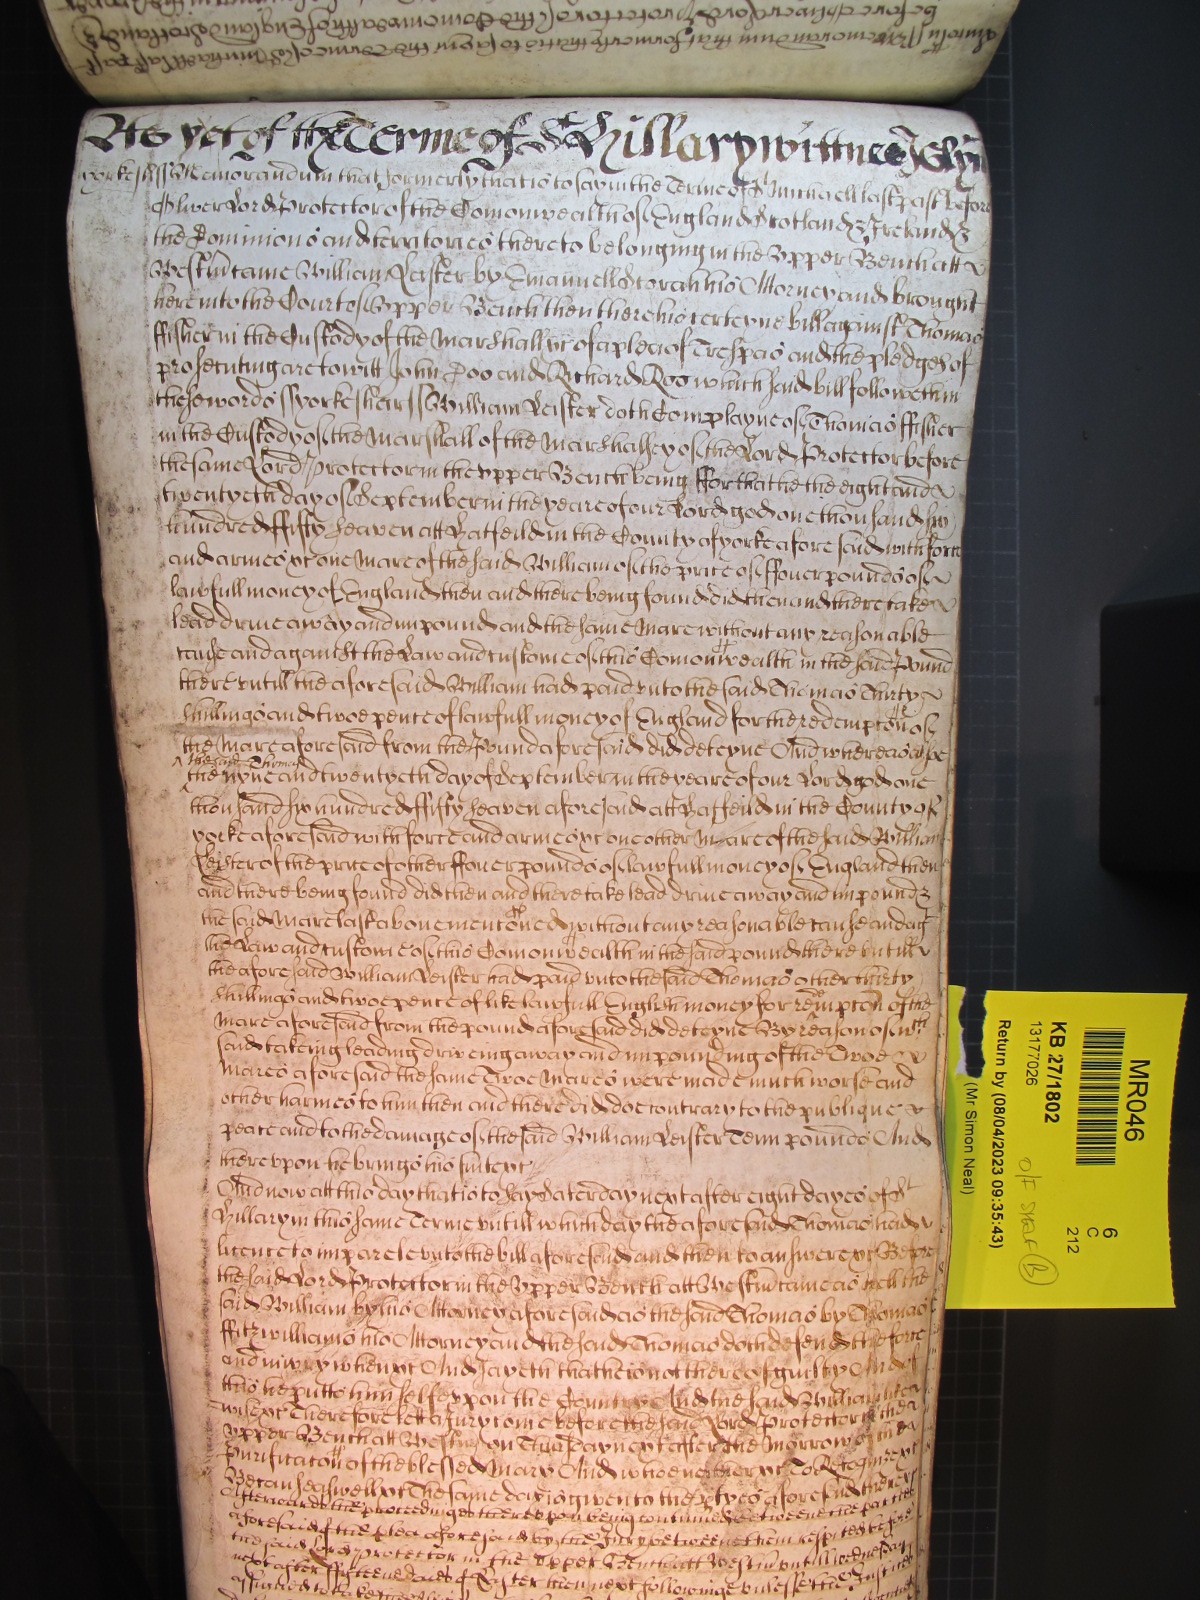 As yet of the Terme of St Hillary wittnes
yorkesh ss Memorandum that formerly that is to say in the Terme of St Michaell last past before
Oliver Lord Protector of the Comonwealth of England Scotland & Ireland &
the Dominions and territories thereto belonging in the Upper Bench att
Westm came William Leister by Emanuell his Attorney and brought
here into the Court of Upper Bench then there his certeyne bill against Thomas
ffisher in the Custody of the Marshall &c of a plea of Trespas and the pledges of
prosecuting are to witt John Doo and Richard Roo which said bill followeth in
these words ss yorkeshear ss William Leister doth Complayne of Thomas ffisher
in the Custody of the Marshall of the Marshallsey of the Lord Protector before
the same Lord Protector in the upper Bench being ffor that he the eight and
twentyeth day of September in the yeare of our Lord god one thousand six
hundred ffifty seaven att Hatfeild in the County of yorke aforesaid with force
and armes &c one Mare of the said William of the price of ffouer pounds of
lawfull money of England then and there being found did then and there take
lead drive away and impound and the same Mare without any reasonable
cause and against the Law and custome of this Comonwealth in the said Pound
there untill the aforesaid William had paid unto the said Thomas Thirty
shillings and twoe pence of lawfull money of England for the redempcon of
the Mare aforesaid from the Pound aforesaid did deteyne And whereas alsoe
the said Thomas
the nyne and twentyeth day of September in the yeare of our Lord god one
thousand six hundred ffifty seaven aforesaid att Hatfeild in the County of
yorke aforesaid with force and armes &c one other Mare of the said William
Leister of the price of other ffouer pounds of lawfull money of England then
and there being found did then and there take lead drive away and impound &
the said Mare last above menconed without any reasonable cause and ag
the Law and custome of this Comonwealth in the said pound there untill
the aforesaid William Leister had paid unto the said Thomas other thirty
shillings and twoe pence of like lawfull English money for redempcon of the
Mare aforesaid from the pound aforesaid did deteyne By reason of wch
said takeing leading driveing away and impounding of the Twoe
Mares aforesaid the same Twoe Mares were made much worse and
other harmes to him then and there did doe contrary to the publique
peace and to the damage of the said William Leister Tenn pounds And
thereupon he brings his suite &c
And now att this day that is to say Saterday next after eight dayes of St
Hillary in this same Terme untill which day the aforesaid Thomas had
licence to imparle unto the bill aforesaid and then to answere &c Before
the said Lord Protector in the Upper Bench att Westm came as well the
said William by his Attorney aforesaid as the said Thomas by Thomas
ffitzwilliams his Attorney and the said Thomas doth defend the force
and iniury when &c And sayeth that he is not thereof guilty And of
this he putts himselfe upon the Country And the said William like
wise &c Therefore lett a Jury come before the said Lord Protector in the
upper Bench att Westm on Thursday next after the Morrow of the
Purificacon of the blessed Mary And whoe neither &c To Recognize &c
Because aswell &c The same day is given to the ptyes aforesaid there &c
Afterwards the proceedings thereupon being continued betweene the parties
aforesaid of the plea aforesaid by the Jury betweene them respited before
the said Lord Protector in the Upper Bench att Westm untill wednesday
next after ffifteene dayes of Easter then next followinge unlesse the Justices
assigned to take
MR046
6
C
212
KB 27/1802
13177026
Return by (08/04/2023 09:35:43)
(Mr Simon Neal)
O/F
B